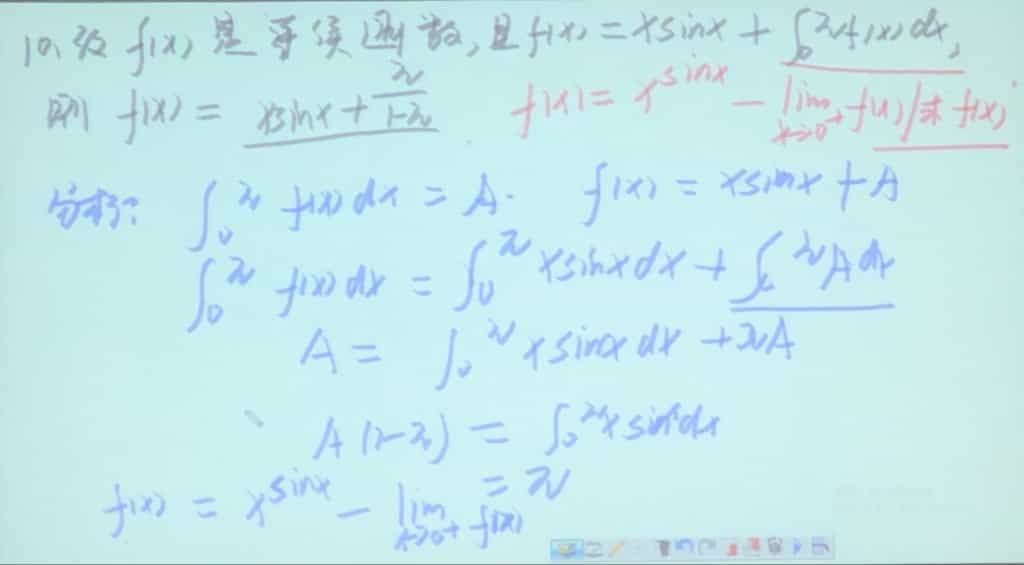 10. 设 f(x) 是连续函数, 且 f(x) = xsinx + ∫₀^π f(x)dx,
则 f(x) = xsinx + π/(1-π)    f(x) = x^sinx - lim_{x→0⁺} f(x) 求 f(x)
分析: ∫₀^π f(x)dx = A.    f(x) = xsinx + A
∫₀^π f(x)dx = ∫₀^π xsinxdx + ∫₀^π Adx
A = ∫₀^π xsinxdx + πA
A(1-π) = ∫₀^π xsinxdx
= π
f(x) = x^sinx - lim_{x→0+} f(x)